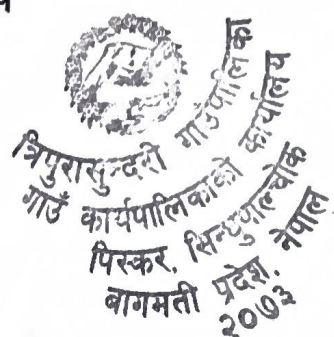 त्रिपुरासुन्दरी गाउँपालिका
गाउँ कार्यपालिकाको कार्यालय
पिस्कर, सिन्धुपाल्चोक
बागमती प्रदेश, नेपाल
२०७३